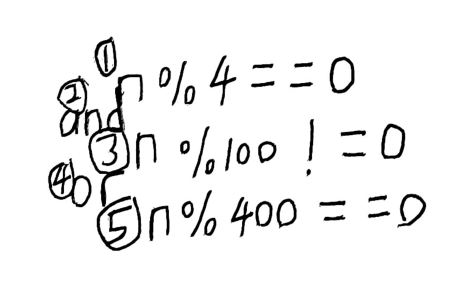 ① n%4==0
② and
③ n%100!=0
④ or
⑤ n%400==0